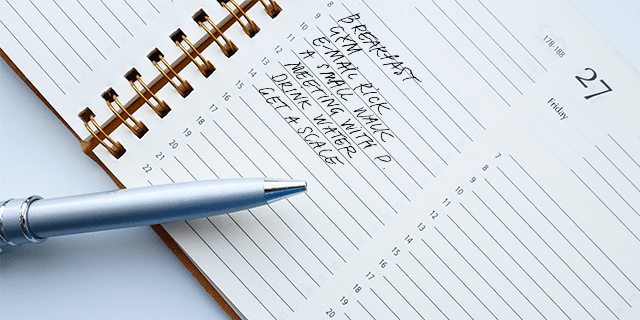 8 BREAKFAST
9 GYM
10 E-MAIL RICK
11 A SMALL WALK
12 MEETING WITH D.
13 DRINK WATER
14 GET A SCALE
15
16
17
18
19
20
21
22
178-188
27
Friday
7
8
9
10
11
12
13
14
15
16
17
18
19
20